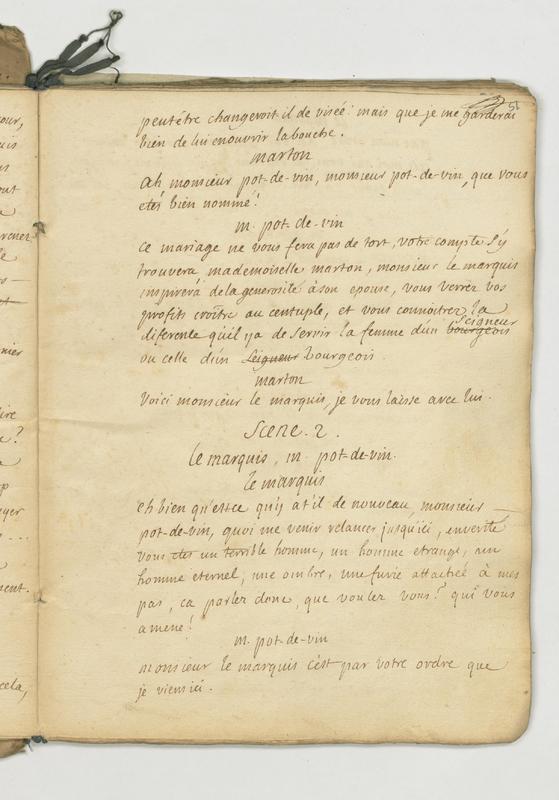 51
peutétre changeroit il de visée mais que je me garderai
bien de lui enouvrir labouche.
marton
ah monsieur pot-de-vin, monsieur pot-de-vin, que vous
etes bien nommé!
m. pot-de-vin
ce mariage ne vous fera pas de tort, votre compte s'y
trouvera mademoiselle marton, monsieur le marquis
inspirera dela generosité àson epouse, vous verrez vos
profits croître au centuple, et vous connoitrez la
seigneur
diference quil ya de servir la femme dun bourgeois
ou celle dun seigneur bourgeois.
marton
Voici monsieur le marquis, je vous laisse avec lui.
Scene. 2.
le marquis, m. pot-de-vin.
le marquis
eh bien qu'estce quy at'il de nouveau, monsieur
pot-de-vin, quoi me venir relancer jusqu'ici, enverité
vous etes un terrible homme, un homme etrange, un
homme eternel, une ombre, une furie attachée à mes
pas, ca parlez donc, que voulez vous? qui vous
amene!
m. pot-de-vin
monsieur le marquis c'est par votre ordre que
je viensici.
our,
uis
out
a
le
nier
ire
e?
a
p
yer
ment.
cela,